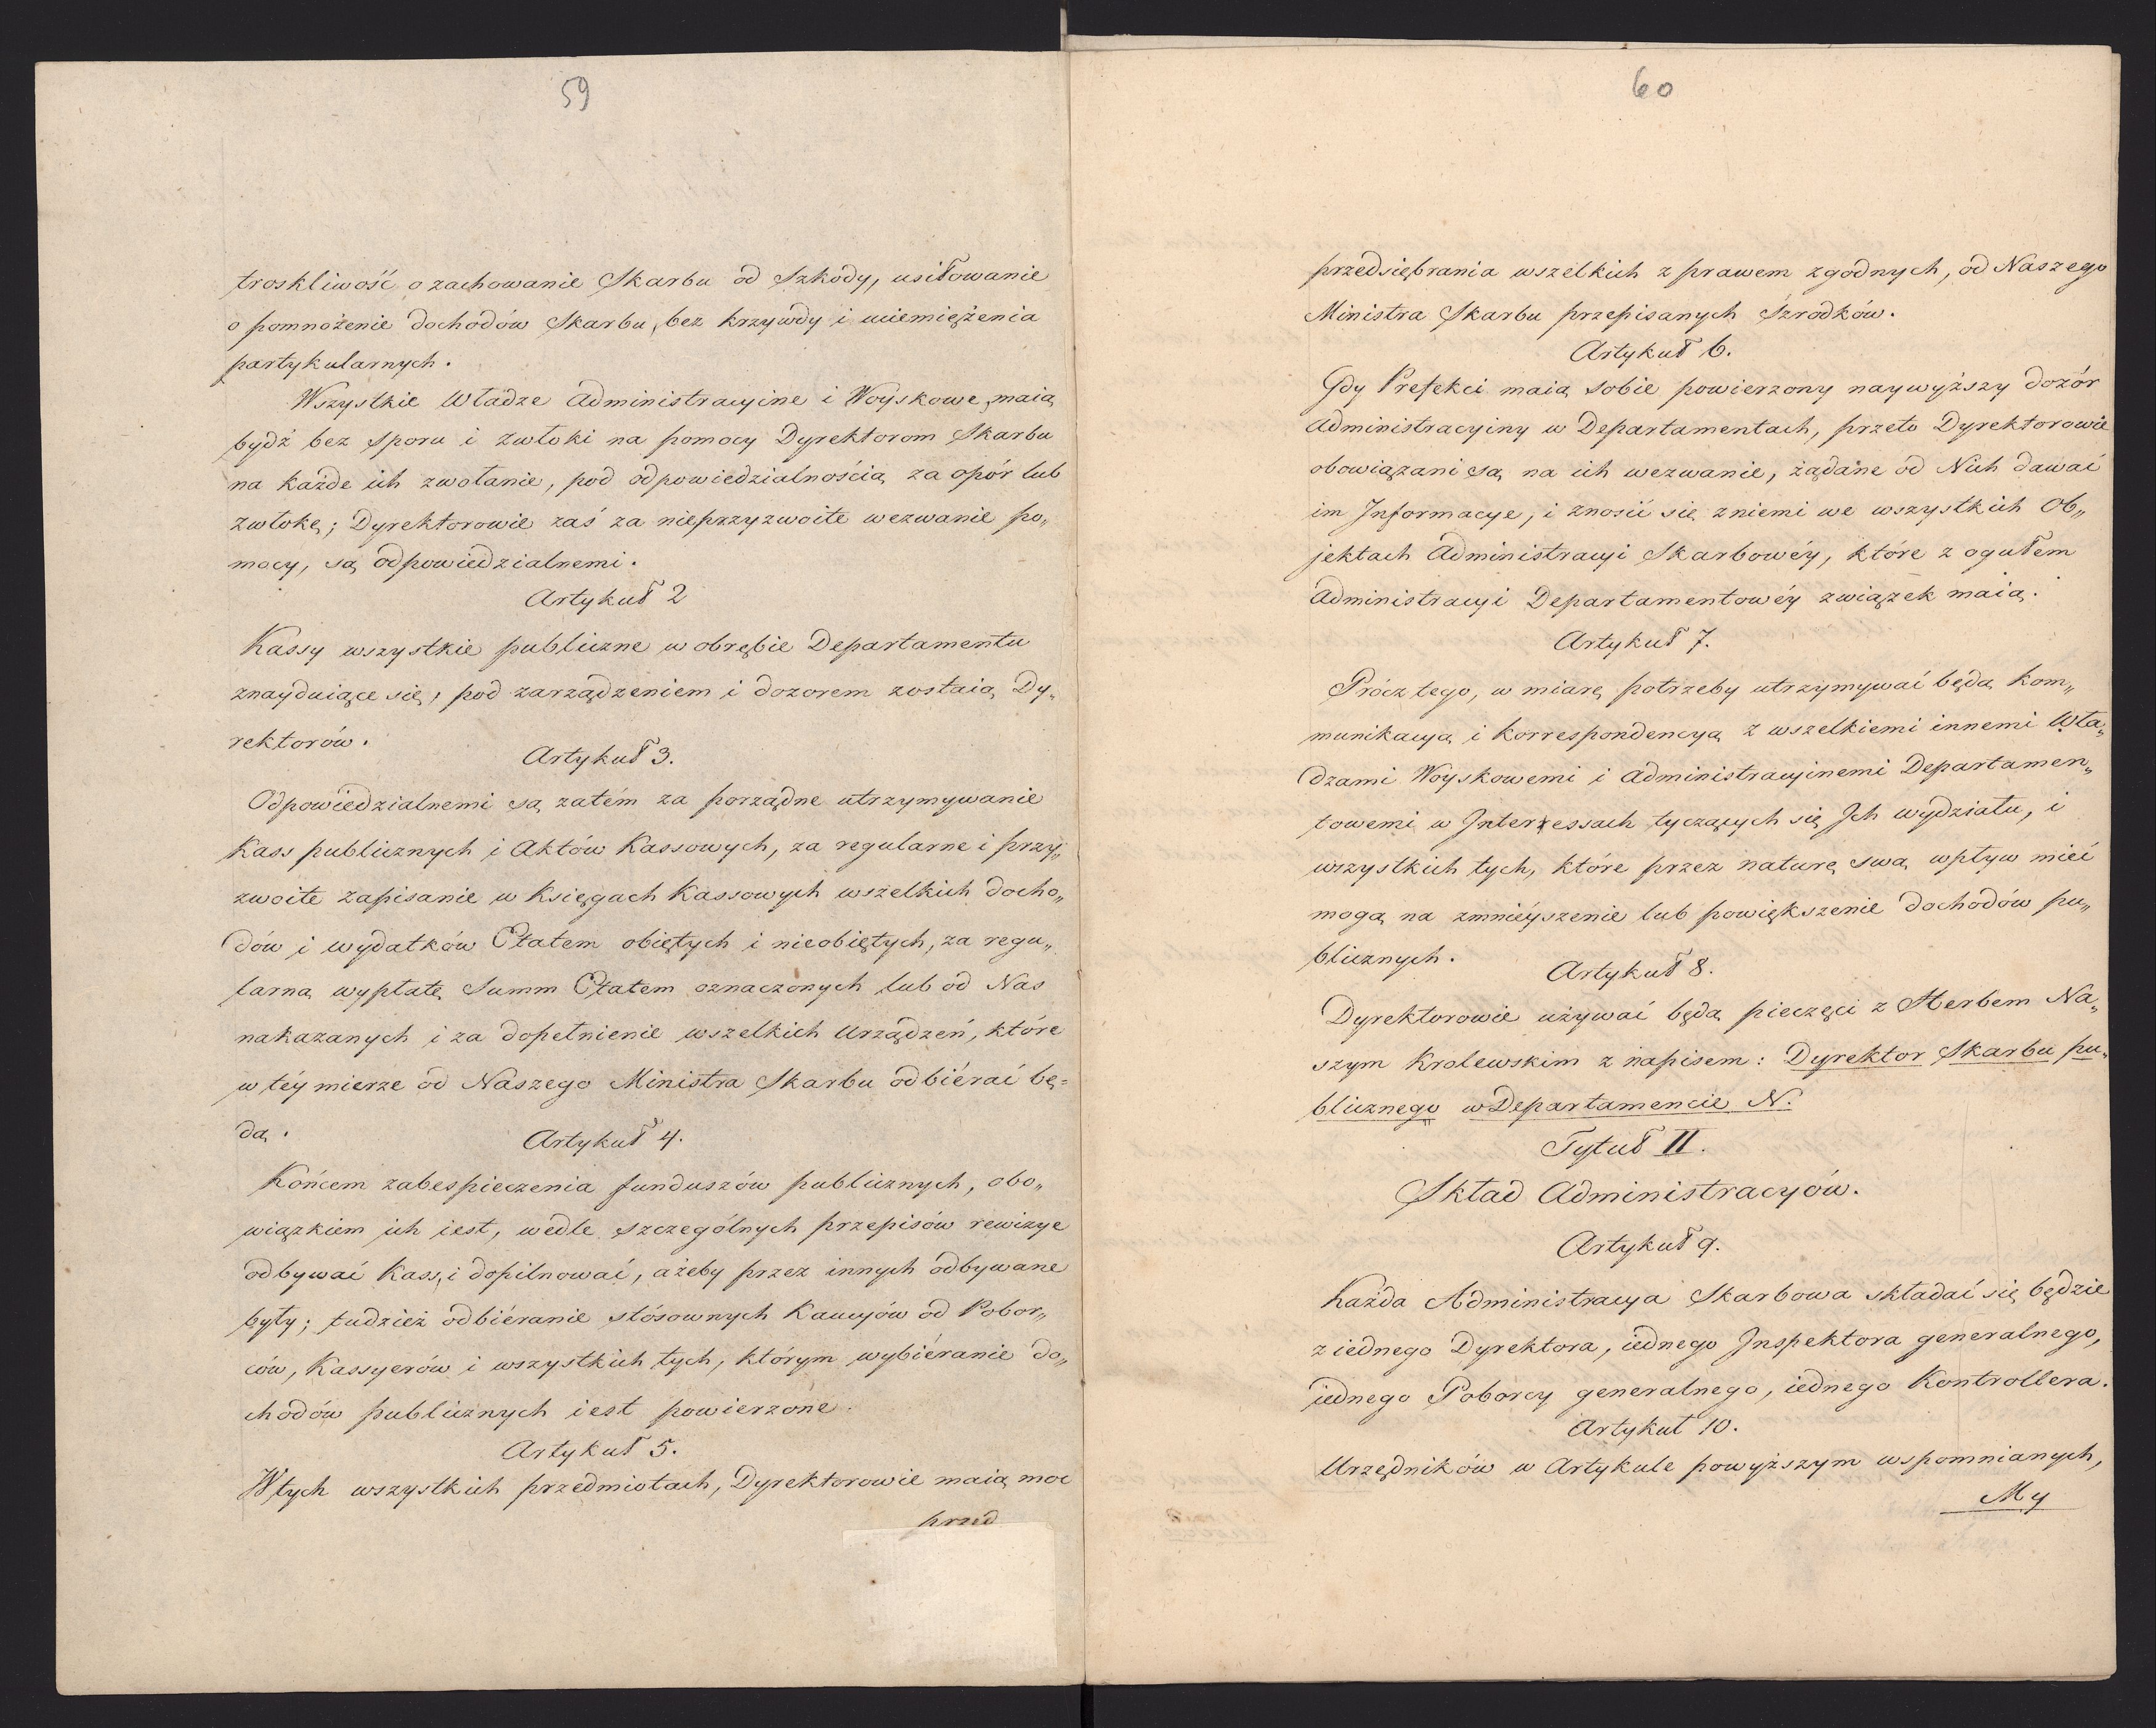 59
troskliwość o zachowanie Skarbu od Szkody, usiłowanie
o pomnożenie dochodów Skarbu, bez krzywdy i uciemiężenia
partykularnych.
Wszystkie Władze Administracyine i Woyskowe, maią
bydź bez sporu i zwłoki na pomocy Dyrektorom Skarbu
na każde ich zwołanie, pod odpowiedzialnością za opór lub
zwłokę; Dyrektorowie zaś za nieprzyzwoite wezwanie po„
mocy, są odpowiedzialnemi.
Artykuł 2
Kassy wszystkie publiczne w obrębie Departamentu
znayduiące się, pod zarządzeniem i dozorem zostaią Dy„
rektorów.
Artykuł 3.
Odpowiedzialnemi są zatém za porządne utrzymywanie
Kass publicznych i Aktów Kassowych, za regularne i przy„
zwoite zapisanie w Księgach Kassowych wszelkich docho„
dów i wydatków Etatem obiętych i nieobiętych, za regu„
larną wypłatę Summ Etatem oznaczonych lub od Nas
nakazanych i za dopełnienie wszelkich Urządzeń, które
w téy mierze od Naszego Ministra Skarbu odbiérać bę=
dą.
Artykuł 4.
Końcem zabespieczenia funduszów publicznych, obo„
wiązkiem ich iest, wedle szczególnych przepisów rewizye
odbywać Kass, i dopilnować, ażeby przez innych odbywane
były; tudzież odbiéranie stósownych Kaucyów od Pobor„
ców, Kassyerów i wszystkich tych, którym wybiéranie do„
chodów publicznych iest powierzone.
Artykuł 5.
W tych wszystkich przedmiotach, Dyrektorowie maią moc
przed
60
przedsiębrania wszelkich z prawem zgodnych, od Naszego
Ministra Skarbu przepisanych Szrodków.
Artykuł 6.
Gdy Prefekci maią sobie powierzony naywyższy dozór
Administracyiny w Departamentach, przeto Dyrektorowie
obowiązani są na ich wezwanie, żądane od Nich dawać
im Informacye, i znosić się z niemi we wszystkich Ob„
jektach Administracyi Skarbowéy, które z ogułem
Administracyi Departamentowéy związek maią.
Artykuł 7.
Prócz tego, w miarę potrzeby utrzymywać będą kom„
munikacyą i korrespondencyą z wszelkiemi innemi Wła„
dzami Woyskowemi i Administracyinemi Departamen„
towemi w Interessach tyczących się Ich wydziału, i
wszystkich tych, które przez naturę swą wpływ mieć
mogą na zmniéyszenie lub powiększenie dochodów pu„
blicznych.
Artykuł 8.
Dyrektorowie używać będą pieczęci z Herbem Na„
szym Krolewskim z napisem: Dyrektor Skarbu pu„
blicznego w Departamencie N.
Tytuł II.
Skład Administracyów.
Artykuł 9.
Każda Administracya Skarbowa składać się będzie
z iednego Dyrektora, iednego Inspektora generalnego,
iednego Poborcy generalnego, iednego Kontrollera.
Artykuł 10.
Urzędników w Artykule powyższym wspomnianych,
My